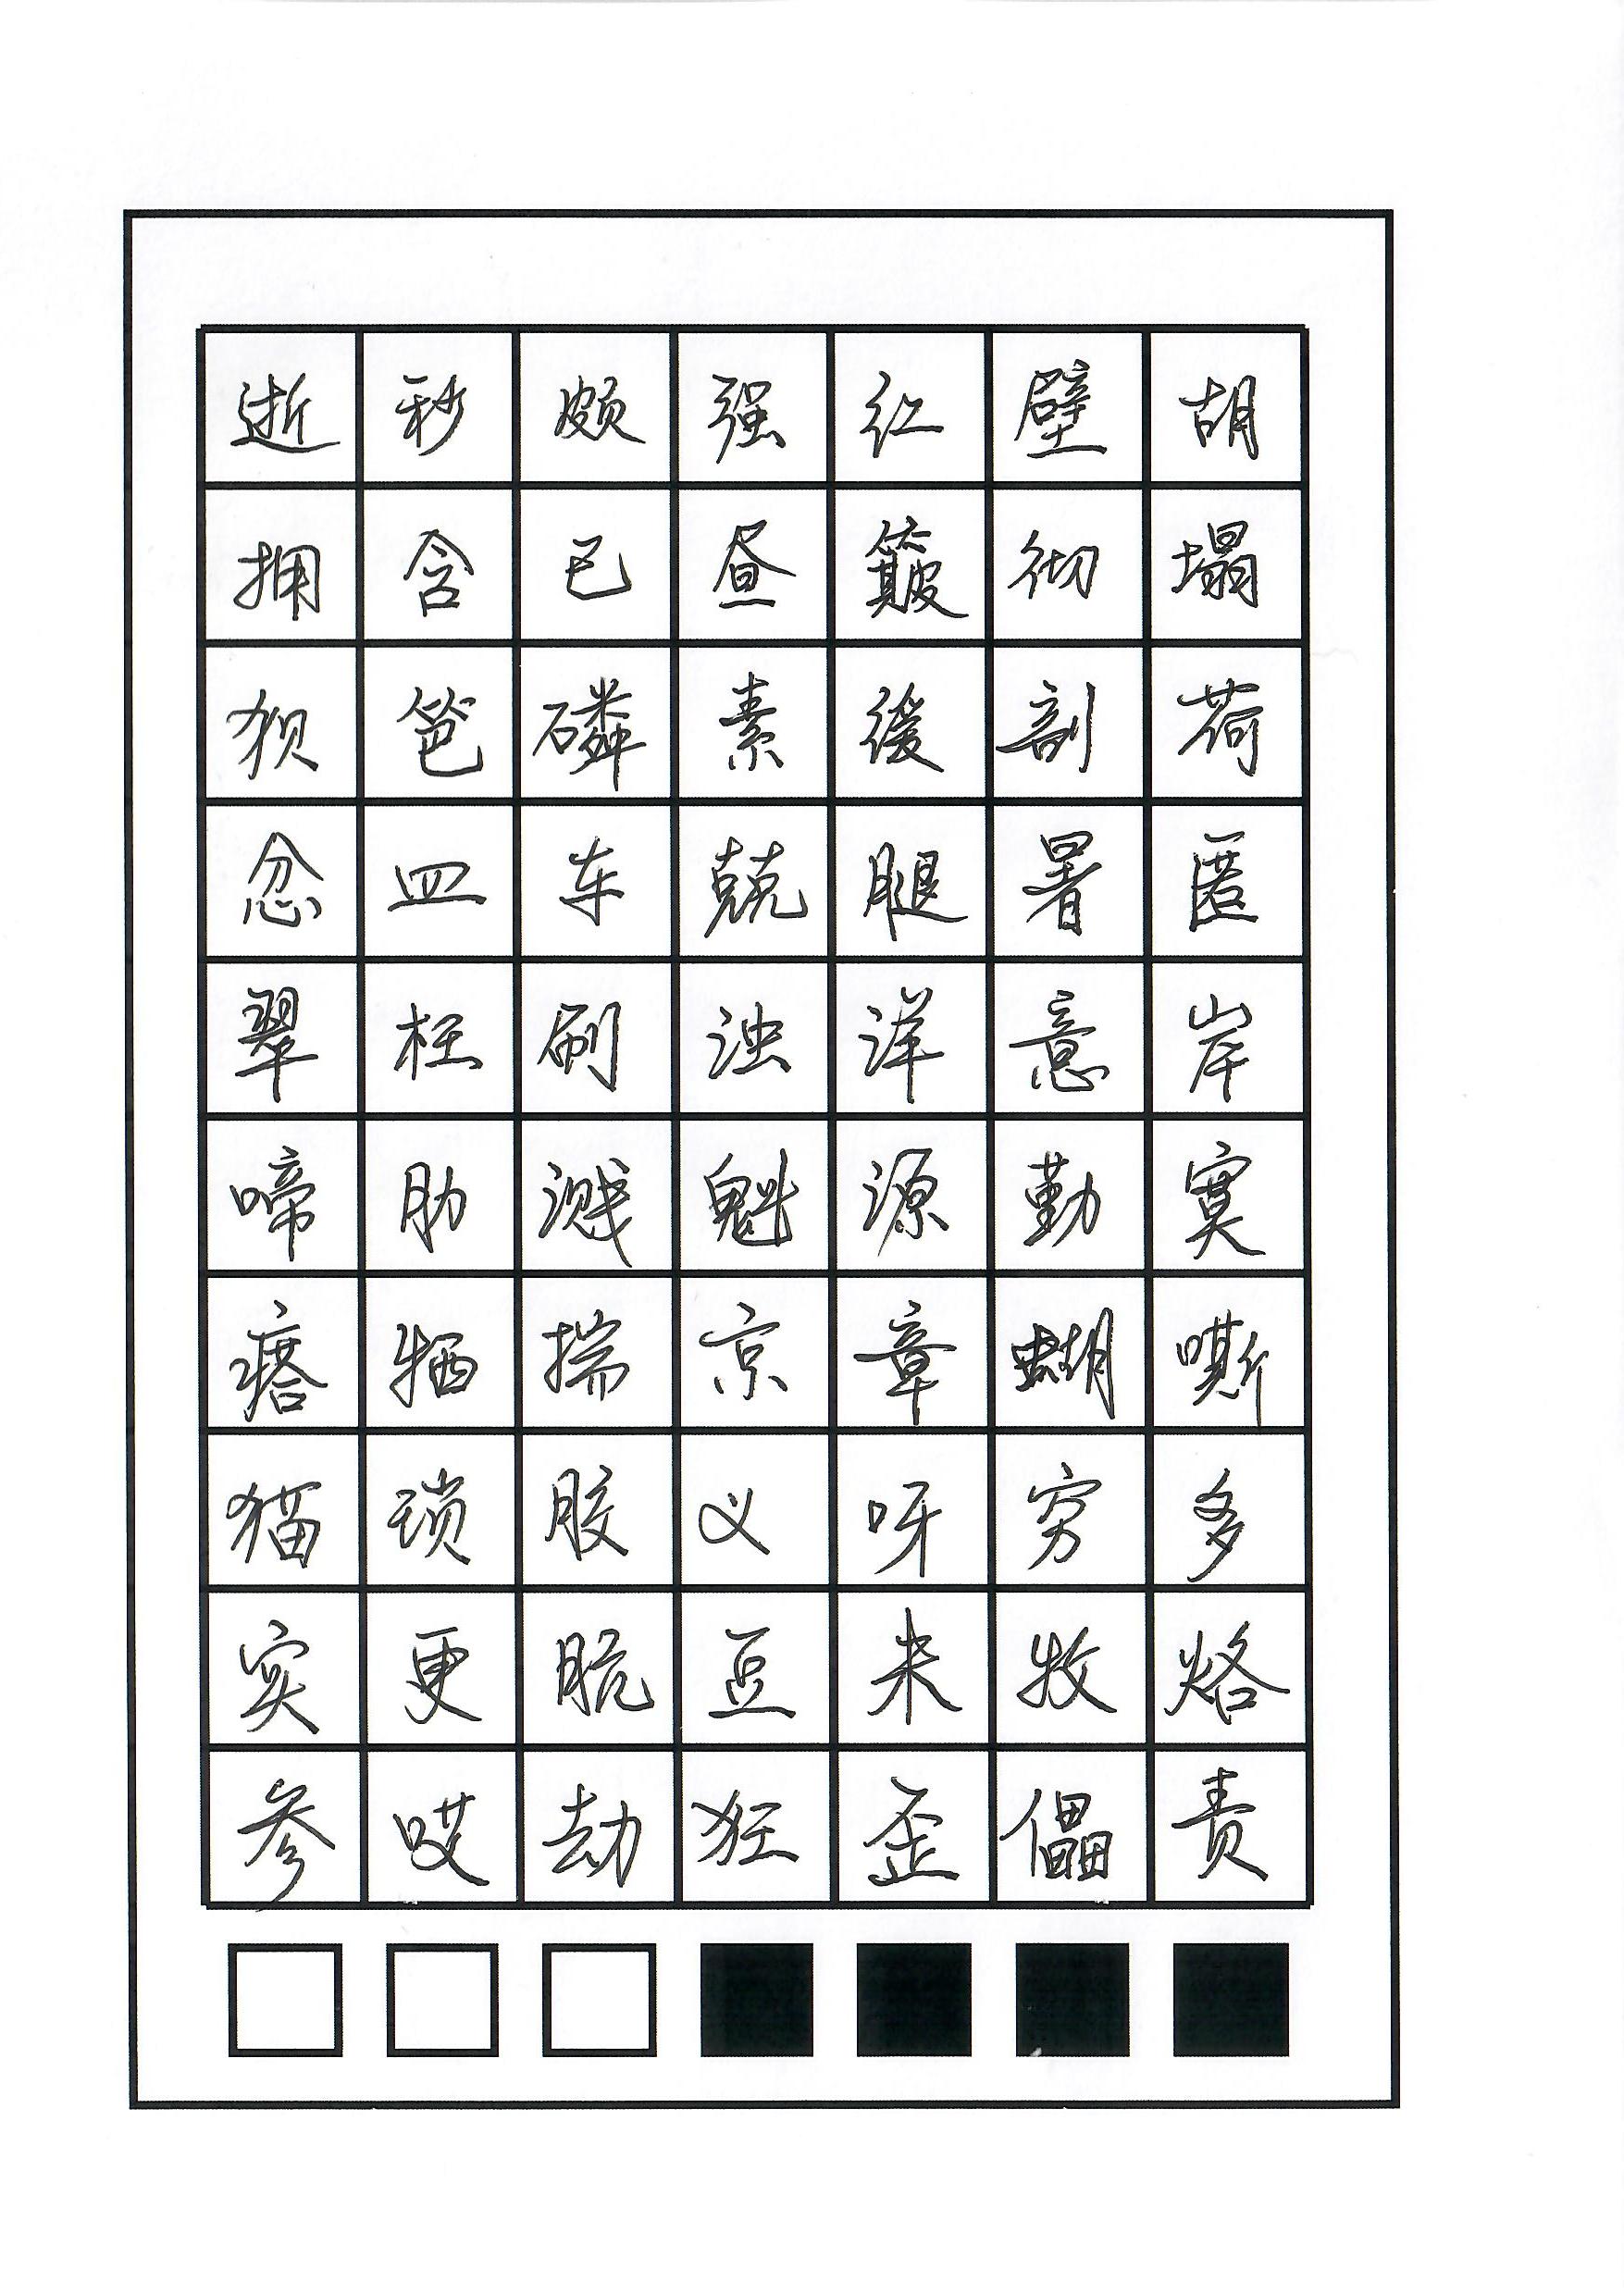 逝秒颇强红壁胡
拥含已昼簸彻塌
狈笆磷素缓剖荷
忿皿车兢腿暑匿
翠枉刷浊洋意岸
啼肋溅魁源勤寞
瘩牺揣京章蝴嘶
猫琐胶义呀穷多
实更肮豆米牧烙
参哎劫狂歪儡责